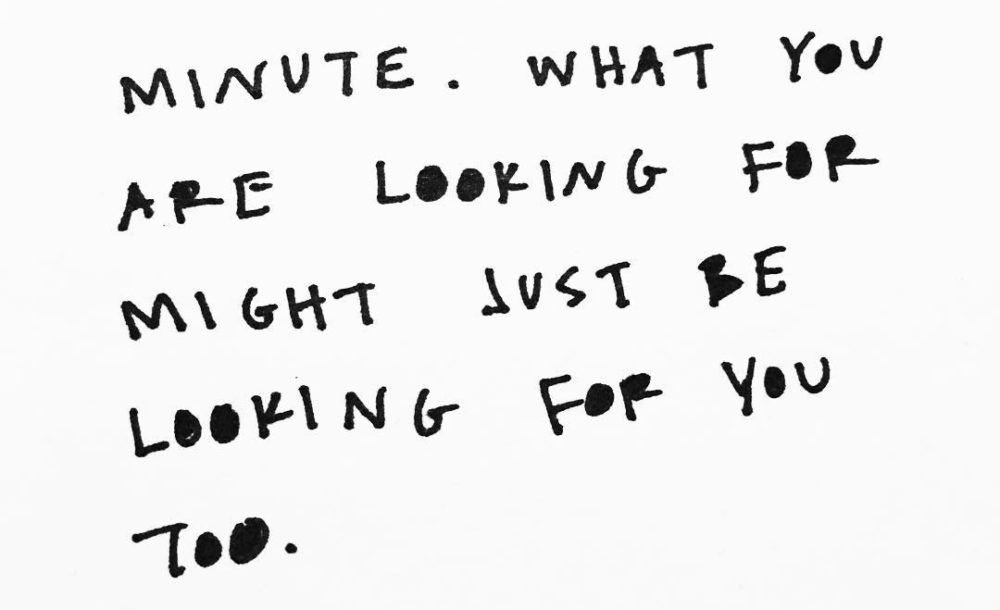 MINUTE. WHAT YOU
ARE LOOKING FOR
MIGHT JUST BE
LOOKING FOR YOU
TOO.